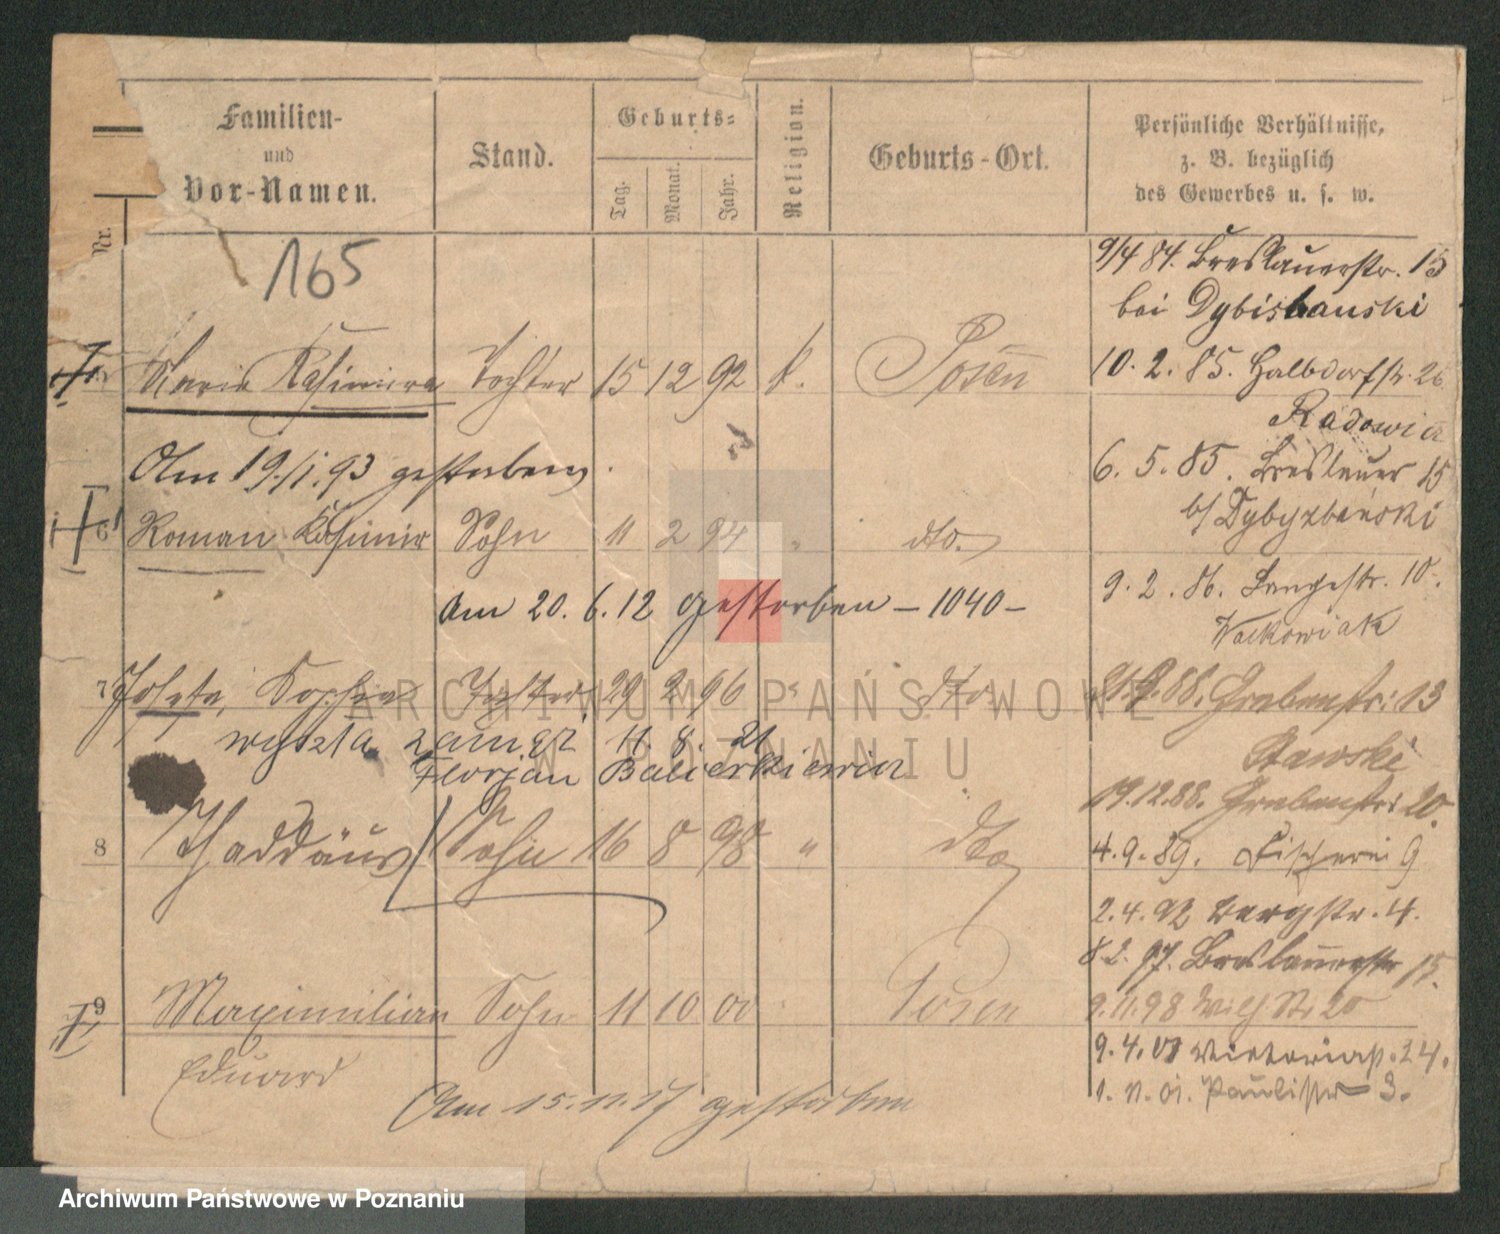 Familien-
und
Vor-Namen.
Stand.
Geburts-
Tag.
Monat.
Jahr.
Religion.
Geburts-Ort.
Persönliche Verhältnisse,
z. B. bezüglich
des Gewerbes u. s. w.
Nr.
165
9/4 84. Breslauerstr. 15
bei Dybisbanski
Maria Kasimira Tochter 15 12 92 k. Posen
10. 2. 85. Halbdorfstr. 26
Radowicz
Am 19./1. 93 gestorben.
6. 5. 85. Breslauer 15
b/ Dybyzbański
6 Roman Kasimir Sohn 11 2 94 " dto.
9. 2. 86. Langestr. 10.
Walkowiak
Am 20. 6. 12 gestorben – 1040 –
7 Josefa, Sophia Tochter 29 2 96 " dto.
88. Grabenstr. 13
Stawski
wyszła zamąż 11. 8. 21
Florjan Balcerkiewicz
19. 12. 88. Grabenstr. 20.
8 Thaddäus Sohn 16 8 98 " dto
4. 9. 89. Fischerei 9
2. 4. 92 Bergstr. 4.
8. 2. 97. Breslauerstr 15.
9 Maximilian Sohn 11 10 00 Posen
9. 11. 98 Wilh. Str. 20
Eduard
9. 4. 01 Victoriastr. 24.
1. 11. 01. Paulistr 3.
Am 15. 11. 17 gestorben
ARCHIWUM PAŃSTWOWE
W POZNANIU
Archiwum Państwowe w Poznaniu